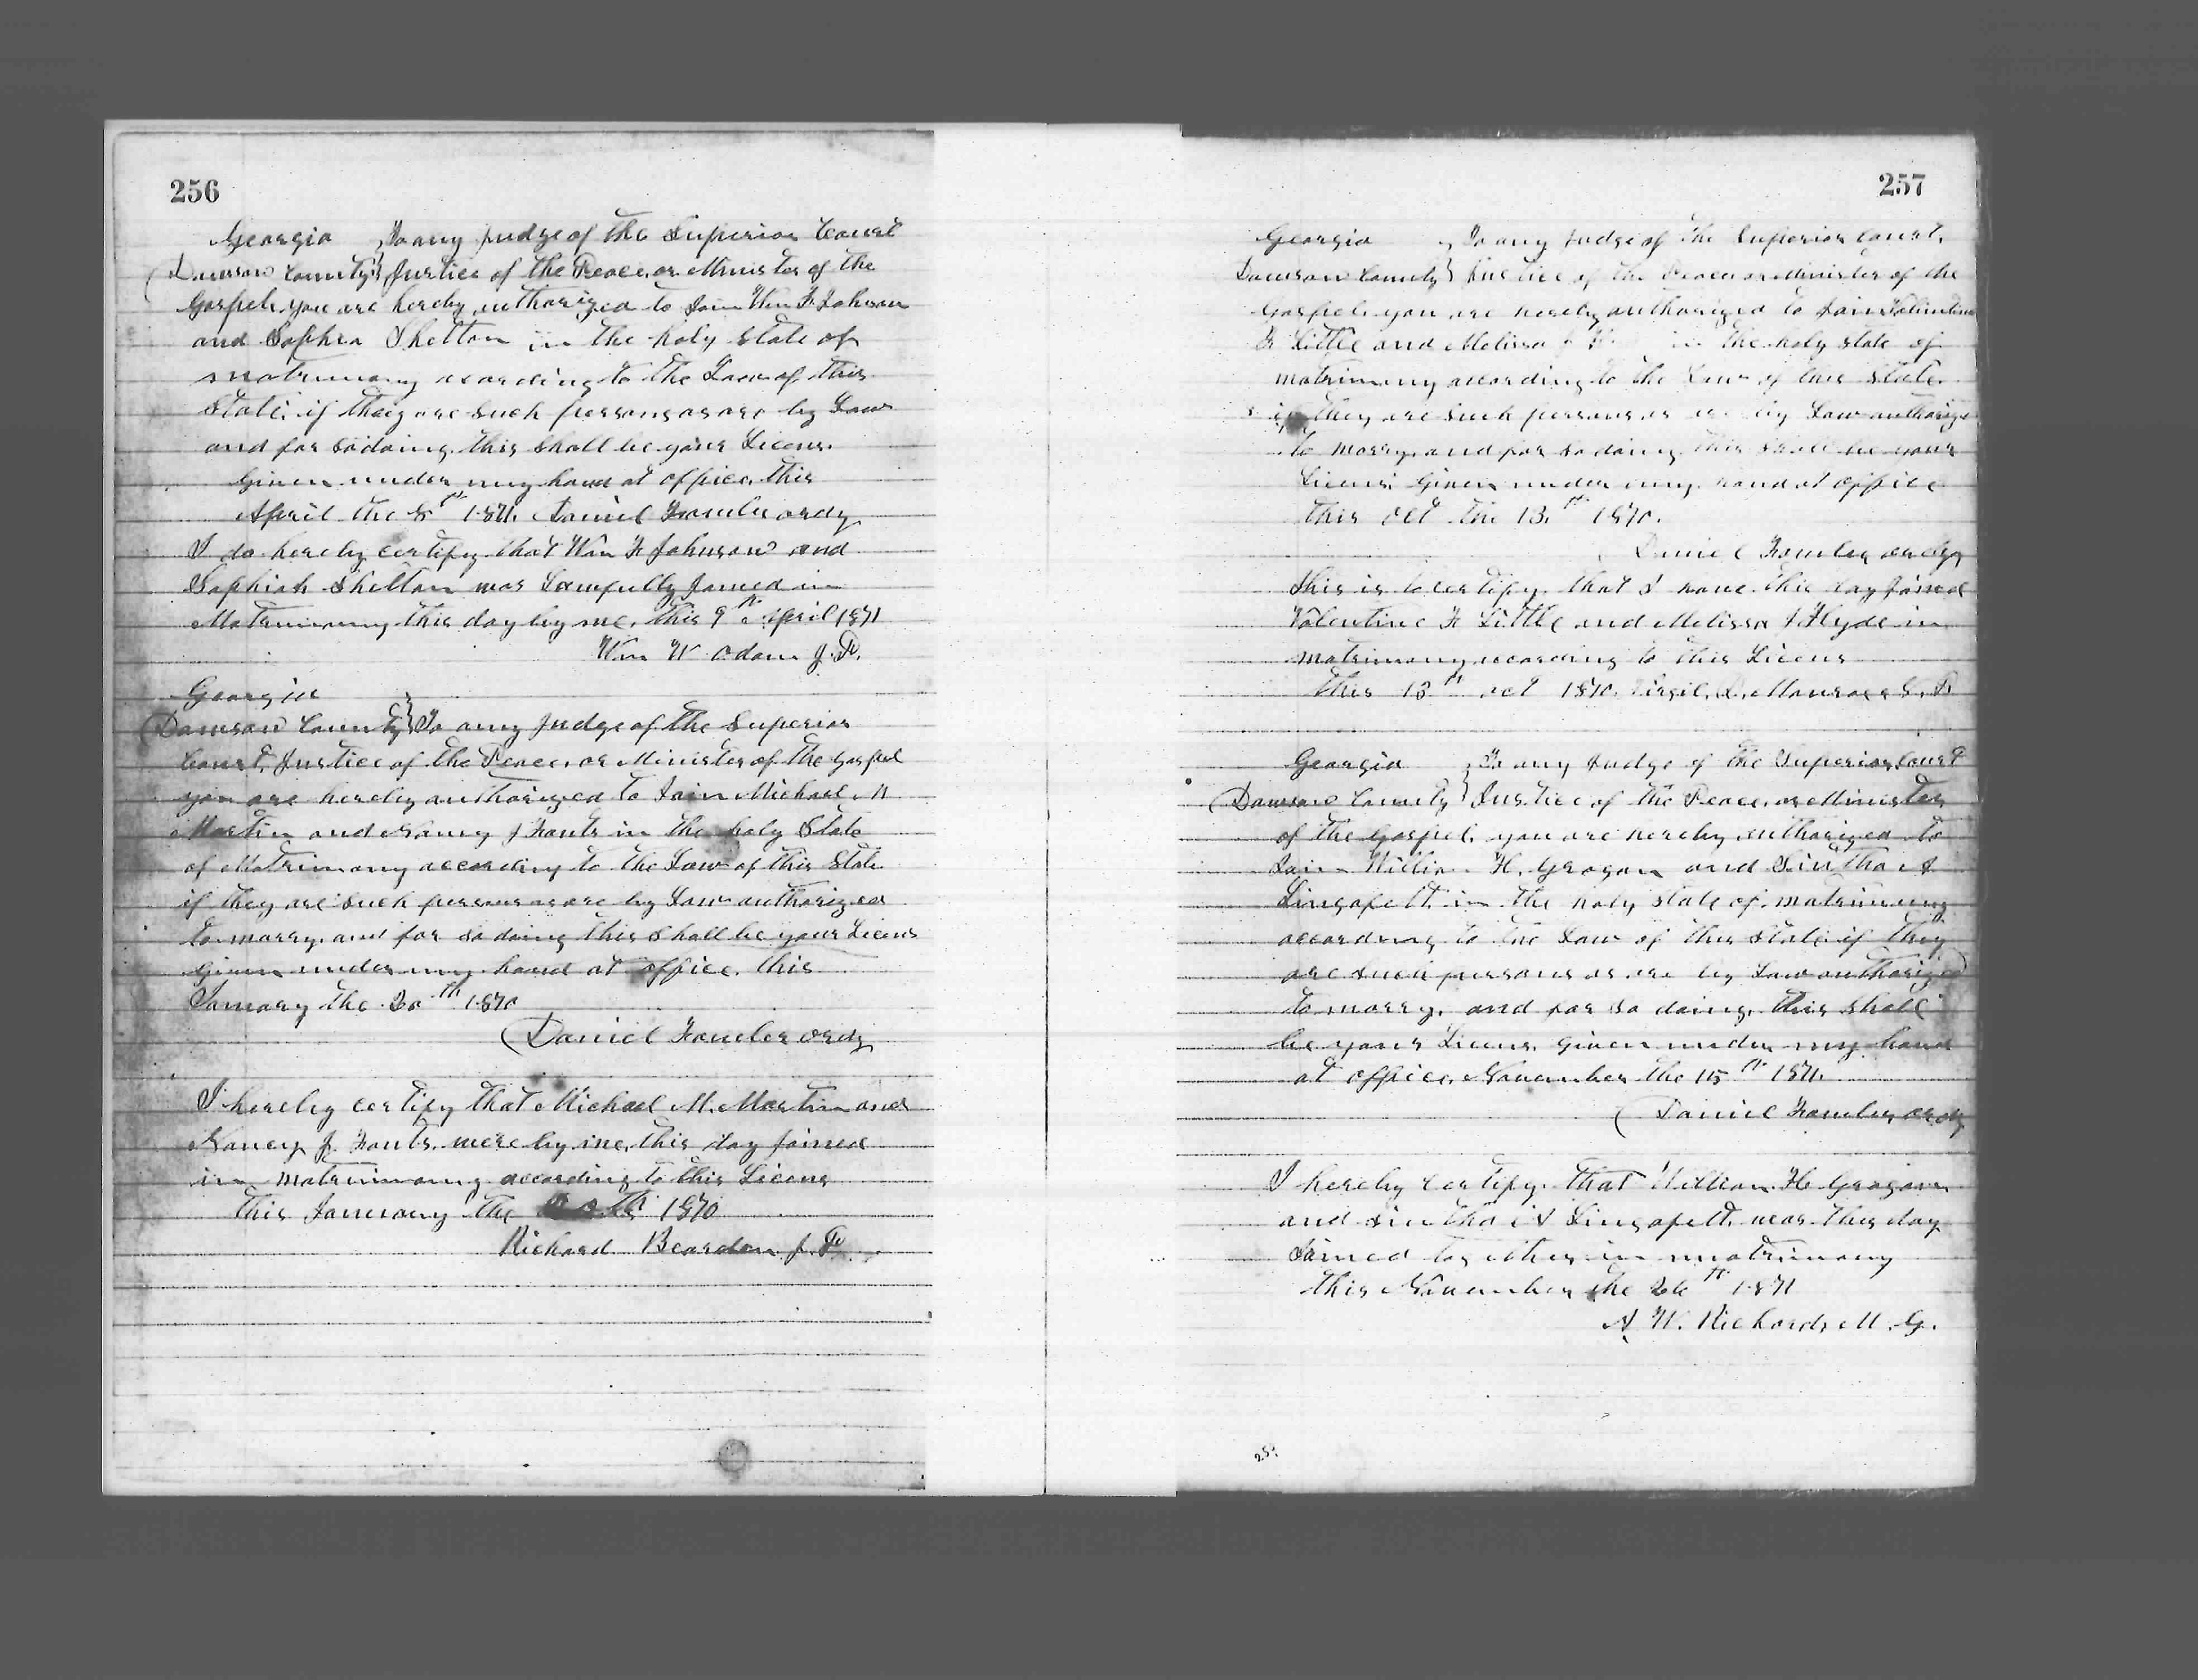 256
Georgia } To any Judge of the Superior Court
Dawson County } Justice of the Peace, or Minister of the
Gospel. you are hereby authorized to Join Wm F Johnson
and Sophia Shelton in the holy State of
matrimony according to the Law of this
State. if they are such persons as are by Law
and for so doing this shall be your Licens.
Given under my hand at office. this
April the 8th 1871. Daniel Fowler ordy
I do hereby certify that Wm F Johnson and
Sophiah Shelton was Lawfully Joined in
Matrimony this day by me. this 9th April 1871
Wm W Odam J. P.
Georgia
Dawson County } To any Judge of the Superior
Court, Justice of the Peace, or Minister of the gospel
you are hereby authorized to Join Michael M
Martin and Nancy J Fants in the holy State
of Matrimony according to the Law of this State
if they are such persons as are by Law authorized
to marry. and for so doing this shall be your Licens
Given under my hand at office. this
January the 20th 1870
Daniel Fowler ordy
I hereby certify that Michael M. Martin and
Nancy J. Fants. were by me, this day joined
in matrimony according to this Licens
this January the 1870
Richard Beardon J. P.
257
Georgia } To any Judge of the Superior Court.
Dawson County } Justice of the Peace or Minister of the
Gospel. you are hereby authorized to Join Valentine
F Little and Melissa in the holy state of
matrimony according to the Law of this State.
if they are such persons as are by Law authorize
to marry. and for so doing this shall be your
Licens. Given under my hand at office
this Oct the 13th 1870.
Daniel Fowler ordy
This is to certify. that I have this day joined
Valentine F Little and Melissa J Hyde in
matrimony according to this Licens
this 13th oct 1870. Virgil. D. J. P.
Georgia } To any Judge of the Superior Court
Dawson County } Justice of the Peace, or Minister
of the Gospel. you are hereby authorized to
Join William H. Grogan and Sintha A
Lingofelt. in the holy state of matrimony
according to the Law of this State if they
are such persons as are by Law authorized
to marry. and for so doing. this shall
be your Licens. Given under my hand
at office. November the 15th 1871.
Daniel Fowler, ordy
I hereby certify. that William H Grogan
and Sintha A Lingofelt. was this day
Joined together in matrimony
this November the 26th 1871
A W. Richards M. G.